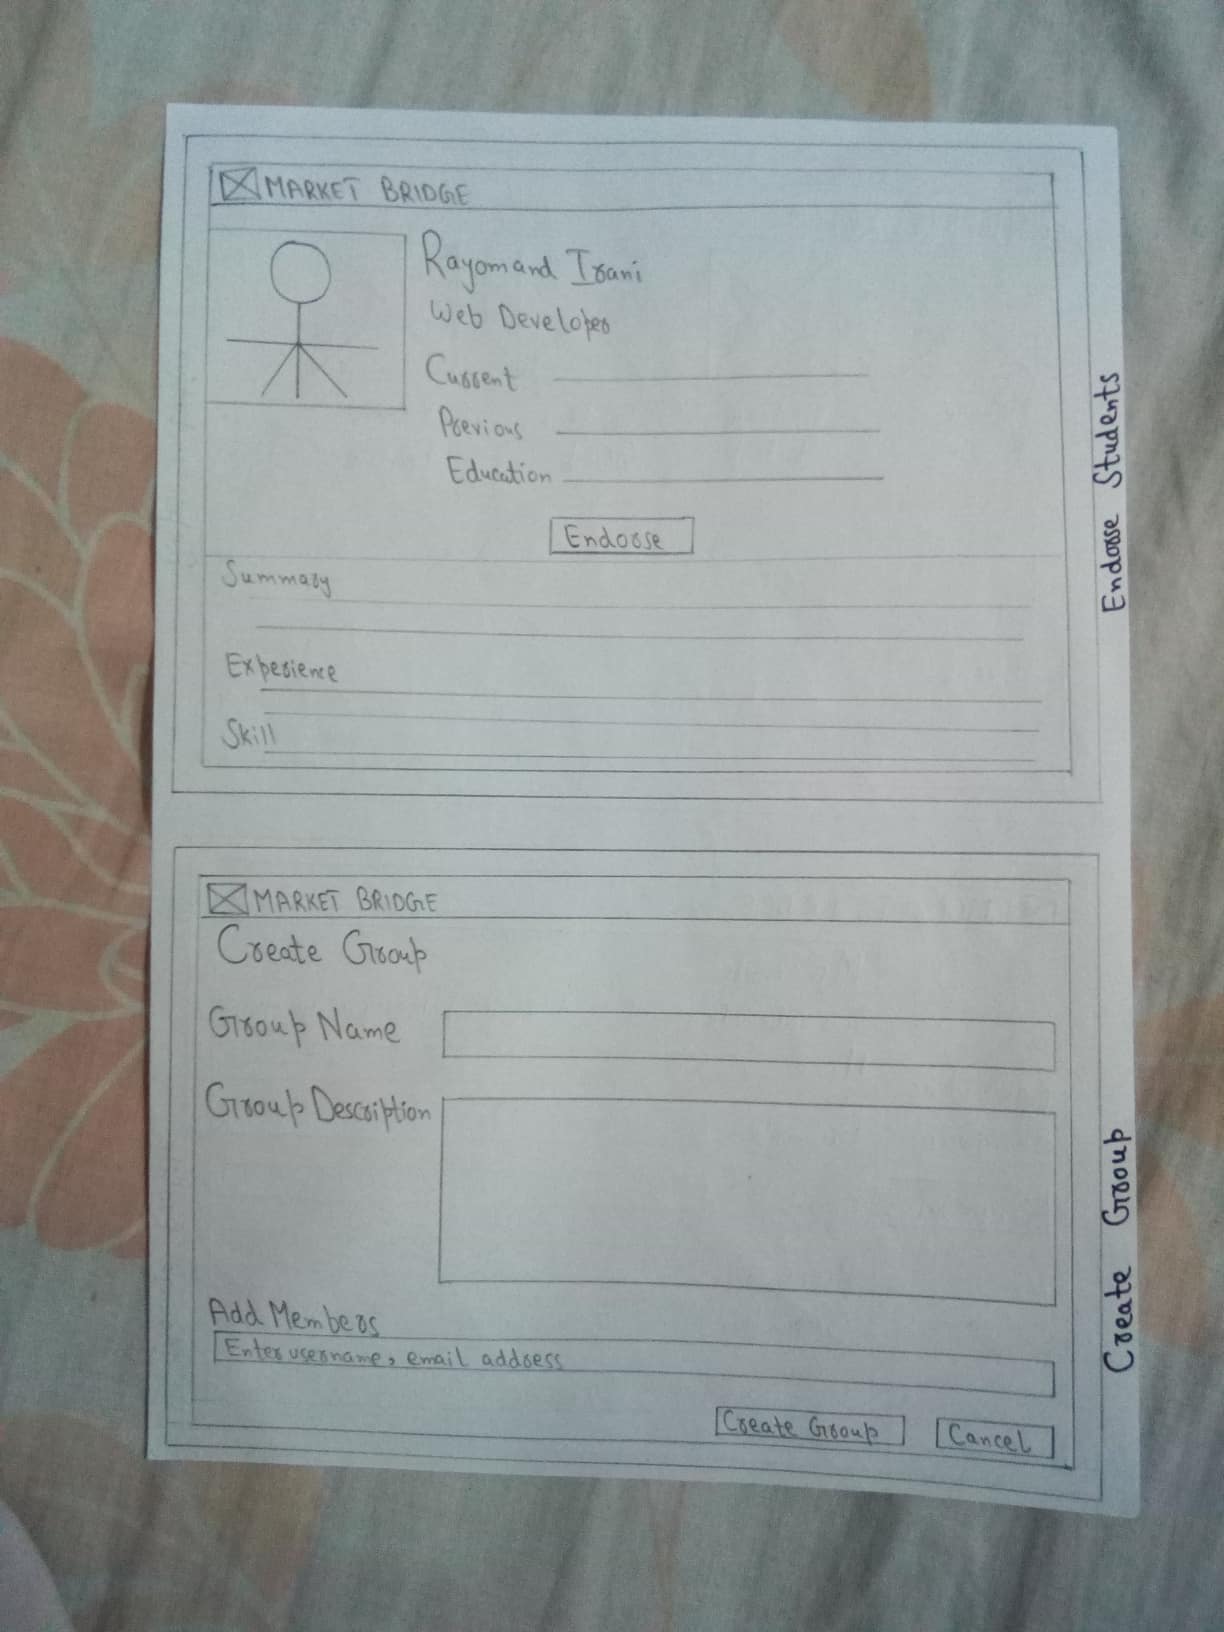 MARKET BRIDGE
Rayomand Irani
Web Developer
Current
Previous
Education
Endorse
Summary
Experience
Skill
Endorse Students
MARKET BRIDGE
Create Group
Group Name
Group Description
Add Members
Enter username, email address
Create Group
Cancel
Create Group